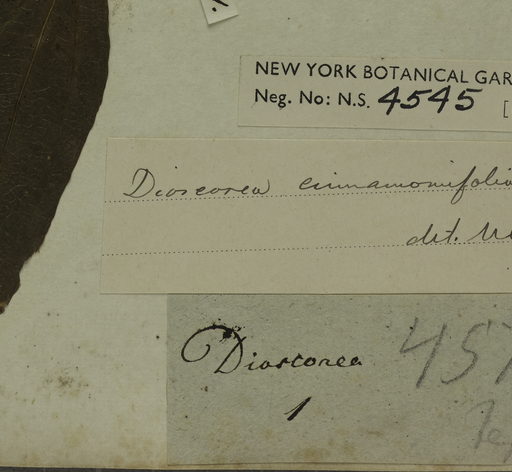 NEW YORK BOTANICAL GAR
Neg. No: N.S. 4545 [
Dioscorea cinnamomifolia
det.
Dioscorea
457
1